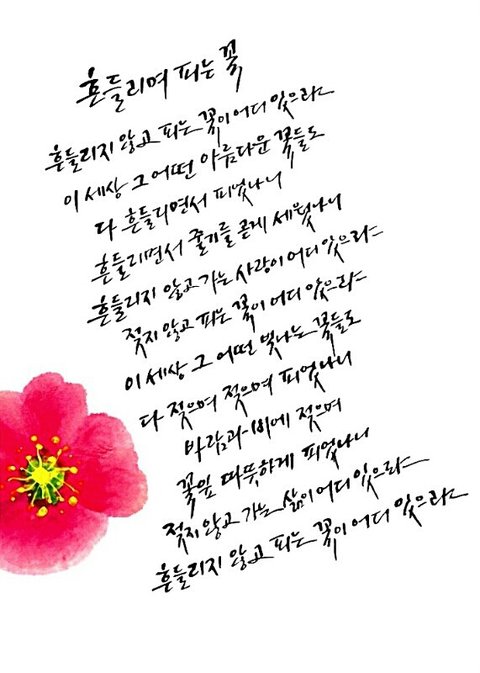 흔들리며 피는 꽃
흔들리지 않고 피는 꽃이 어디 있으랴
이 세상 그 어떤 아름다운 꽃들도
다 흔들리면서 피었나니
흔들리면서 줄기를 곧게 세웠나니
흔들리지 않고 가는 사랑이 어디 있으랴
젖지 않고 피는 꽃이 어디 있으랴
이 세상 그 어떤 빛나는 꽃들도
다 젖으며 젖으며 피었나니
바람과 비에 젖으며
꽃잎 따뜻하게 피었나니
젖지 않고 가는 삶이 어디 있으랴
흔들리지 않고 피는 꽃이 어디 있으랴